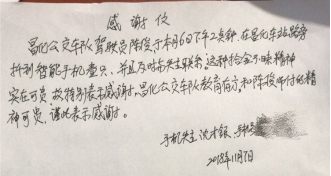 感谢信
昌化公交车队驾驶员陈俊于本月6日下午2点钟,在昌化车站路旁
拆到智能手机壹只,并且及时与失主联系。这种拾金不昧精神
实在可贵,故特别表示感谢。昌化公交车队教育有方,和陈俊师付的精
神可贵,谨此表示感谢。
手机失主沈才银
2018年11月7日